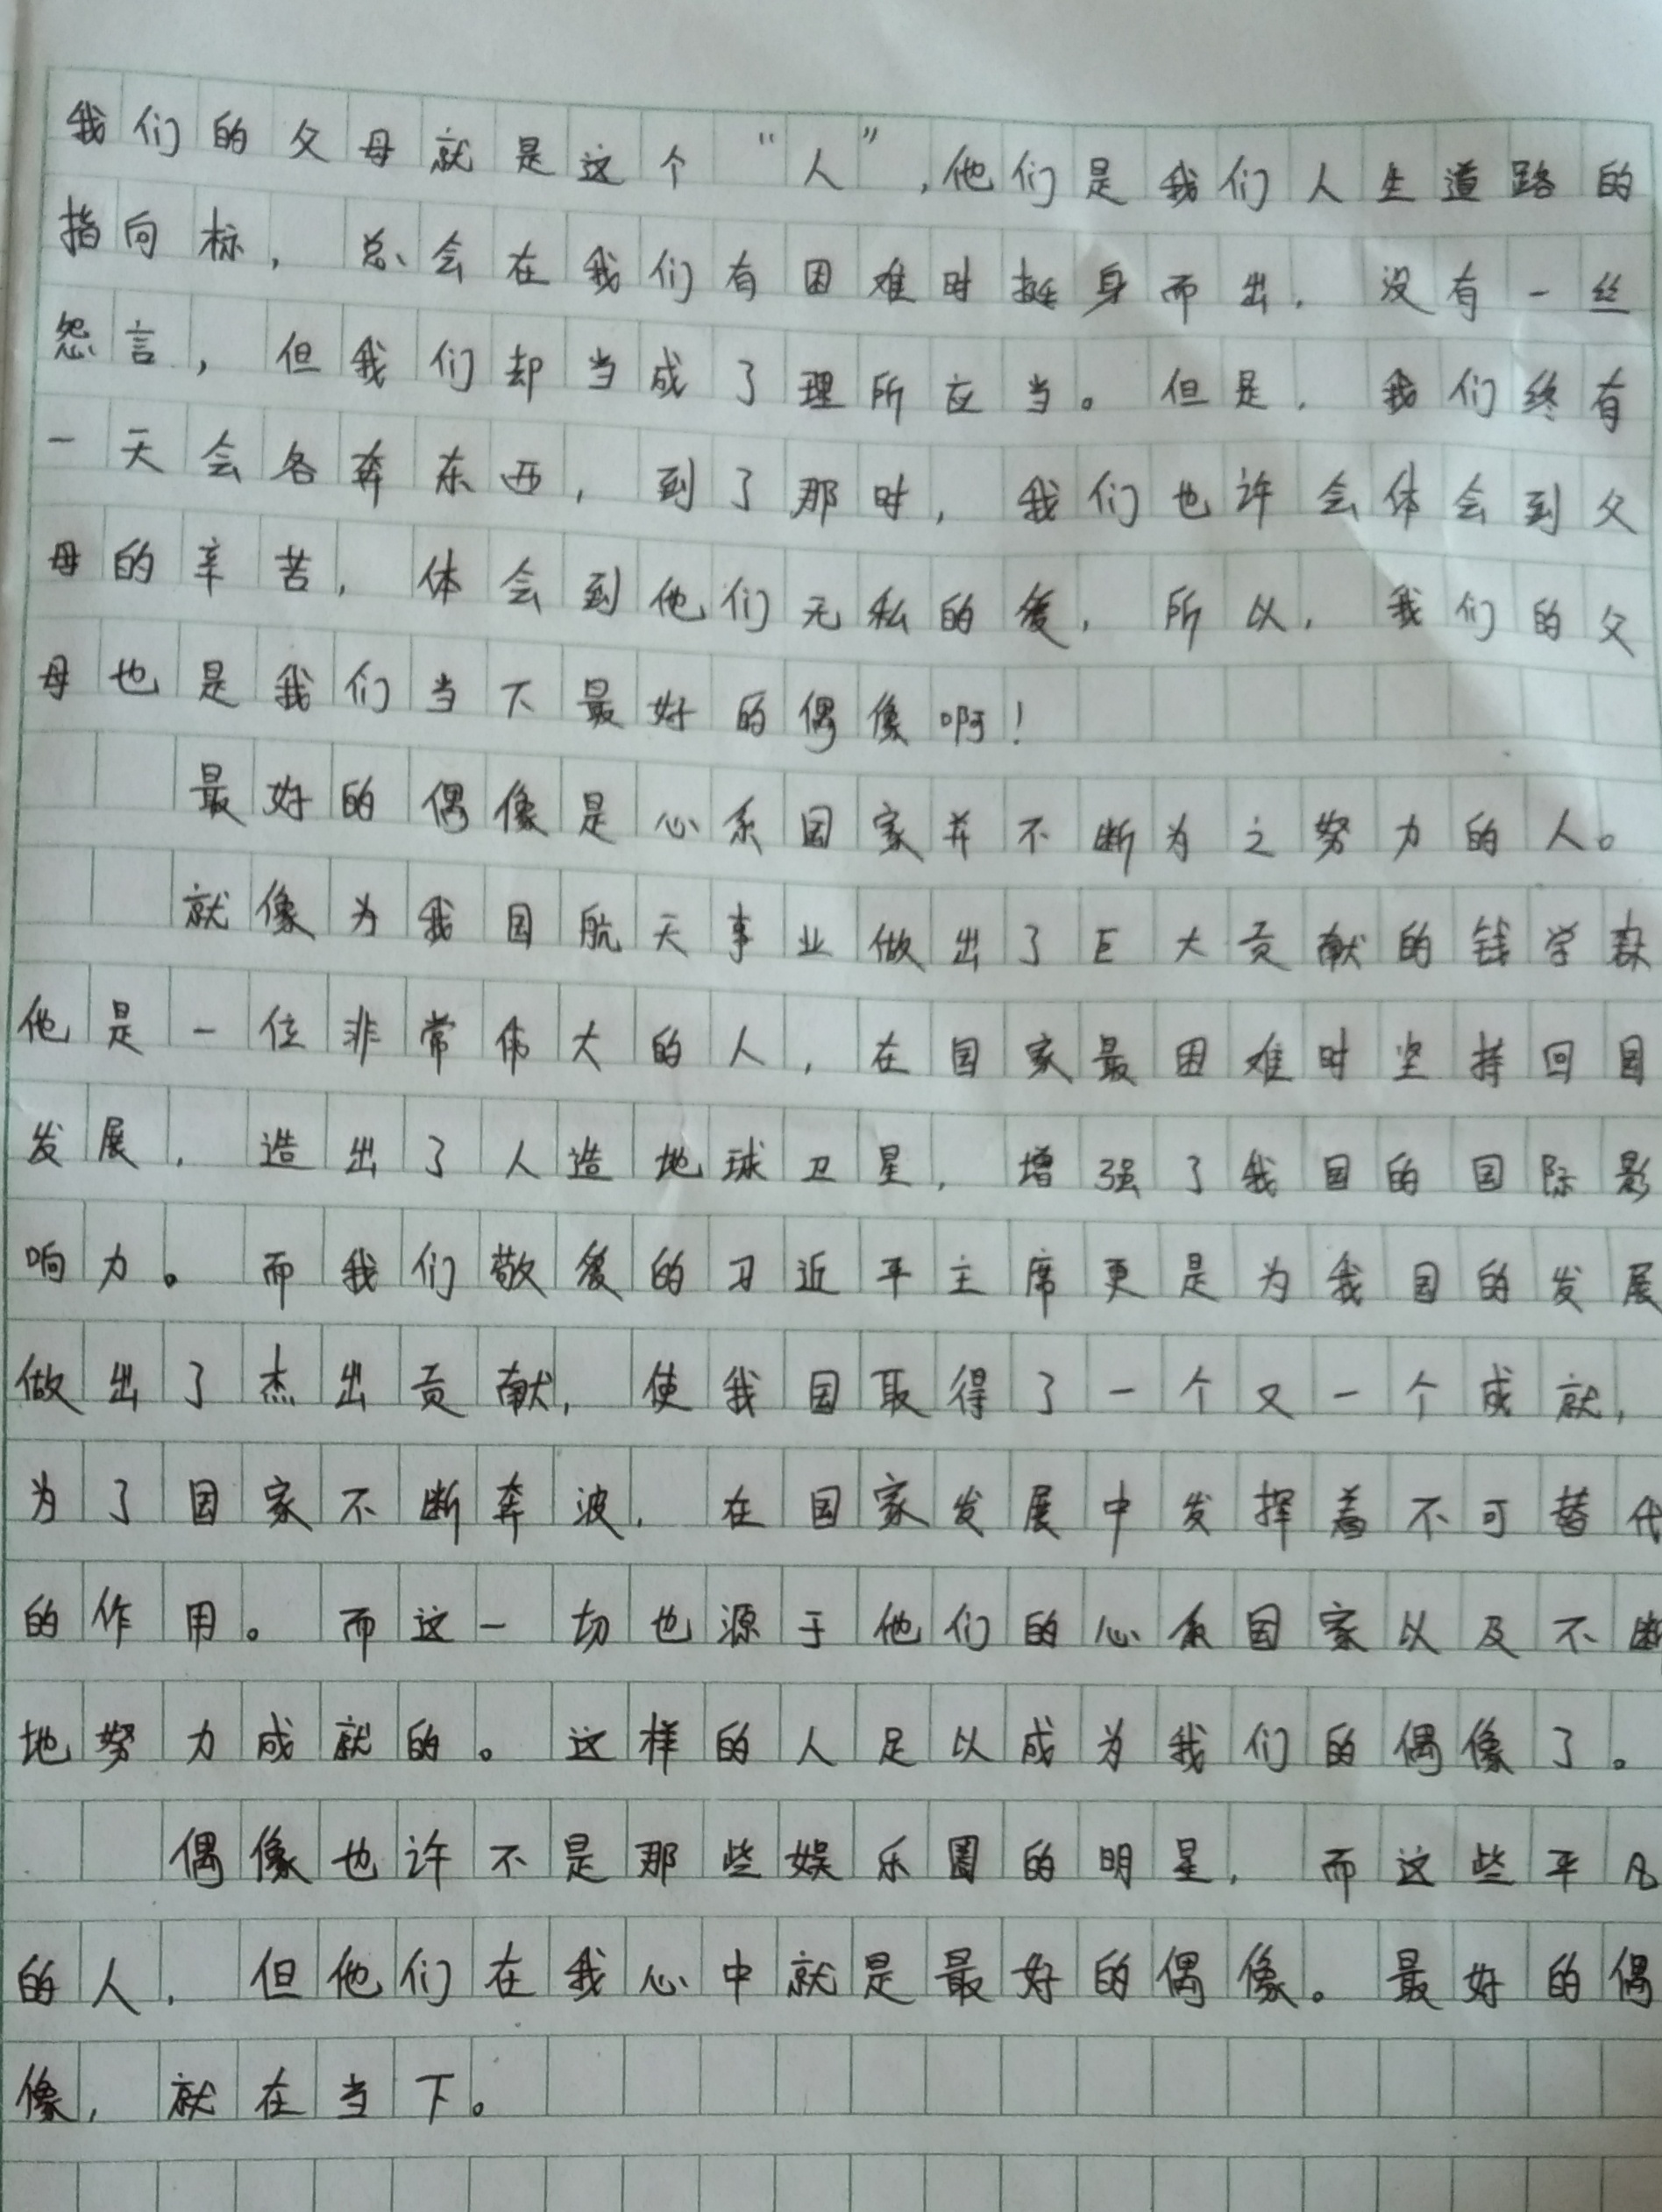 我们的父母就是这个“人”,他们是我们人生道路的
指向标，总会在我们有困难时挺身而出，没有一丝
怨言，但我们却当成了理所应当。但是，我们终有
一天会各奔东西，到了那时，我们也许会体会到父
母的辛苦，体会到他们无私的爱，所以，我们的父
母也是我们当下最好的偶像啊！
最好的偶像是心系国家并不断为之努力的人。
就像为我国航天事业做出了巨大贡献的钱学森
他是一位非常伟大的人，在国家最困难时坚持回国
发展，造出了人造地球卫星，增强了我国的国际影
响力。而我们敬爱的习近平主席更是为我国的发展
做出了杰出贡献，使我国取得了一个又一个成就，
为了国家不断奔波，在国家发展中发挥着不可替代
的作用。而这一切也源于他们的心系国家以及不断
地努力成就的。这样的人足以成为我们的偶像了。
偶像也许不是那些娱乐圈的明星，而这些平凡
的人，但他们在我心中就是最好的偶像。最好的偶
像，就在当下。